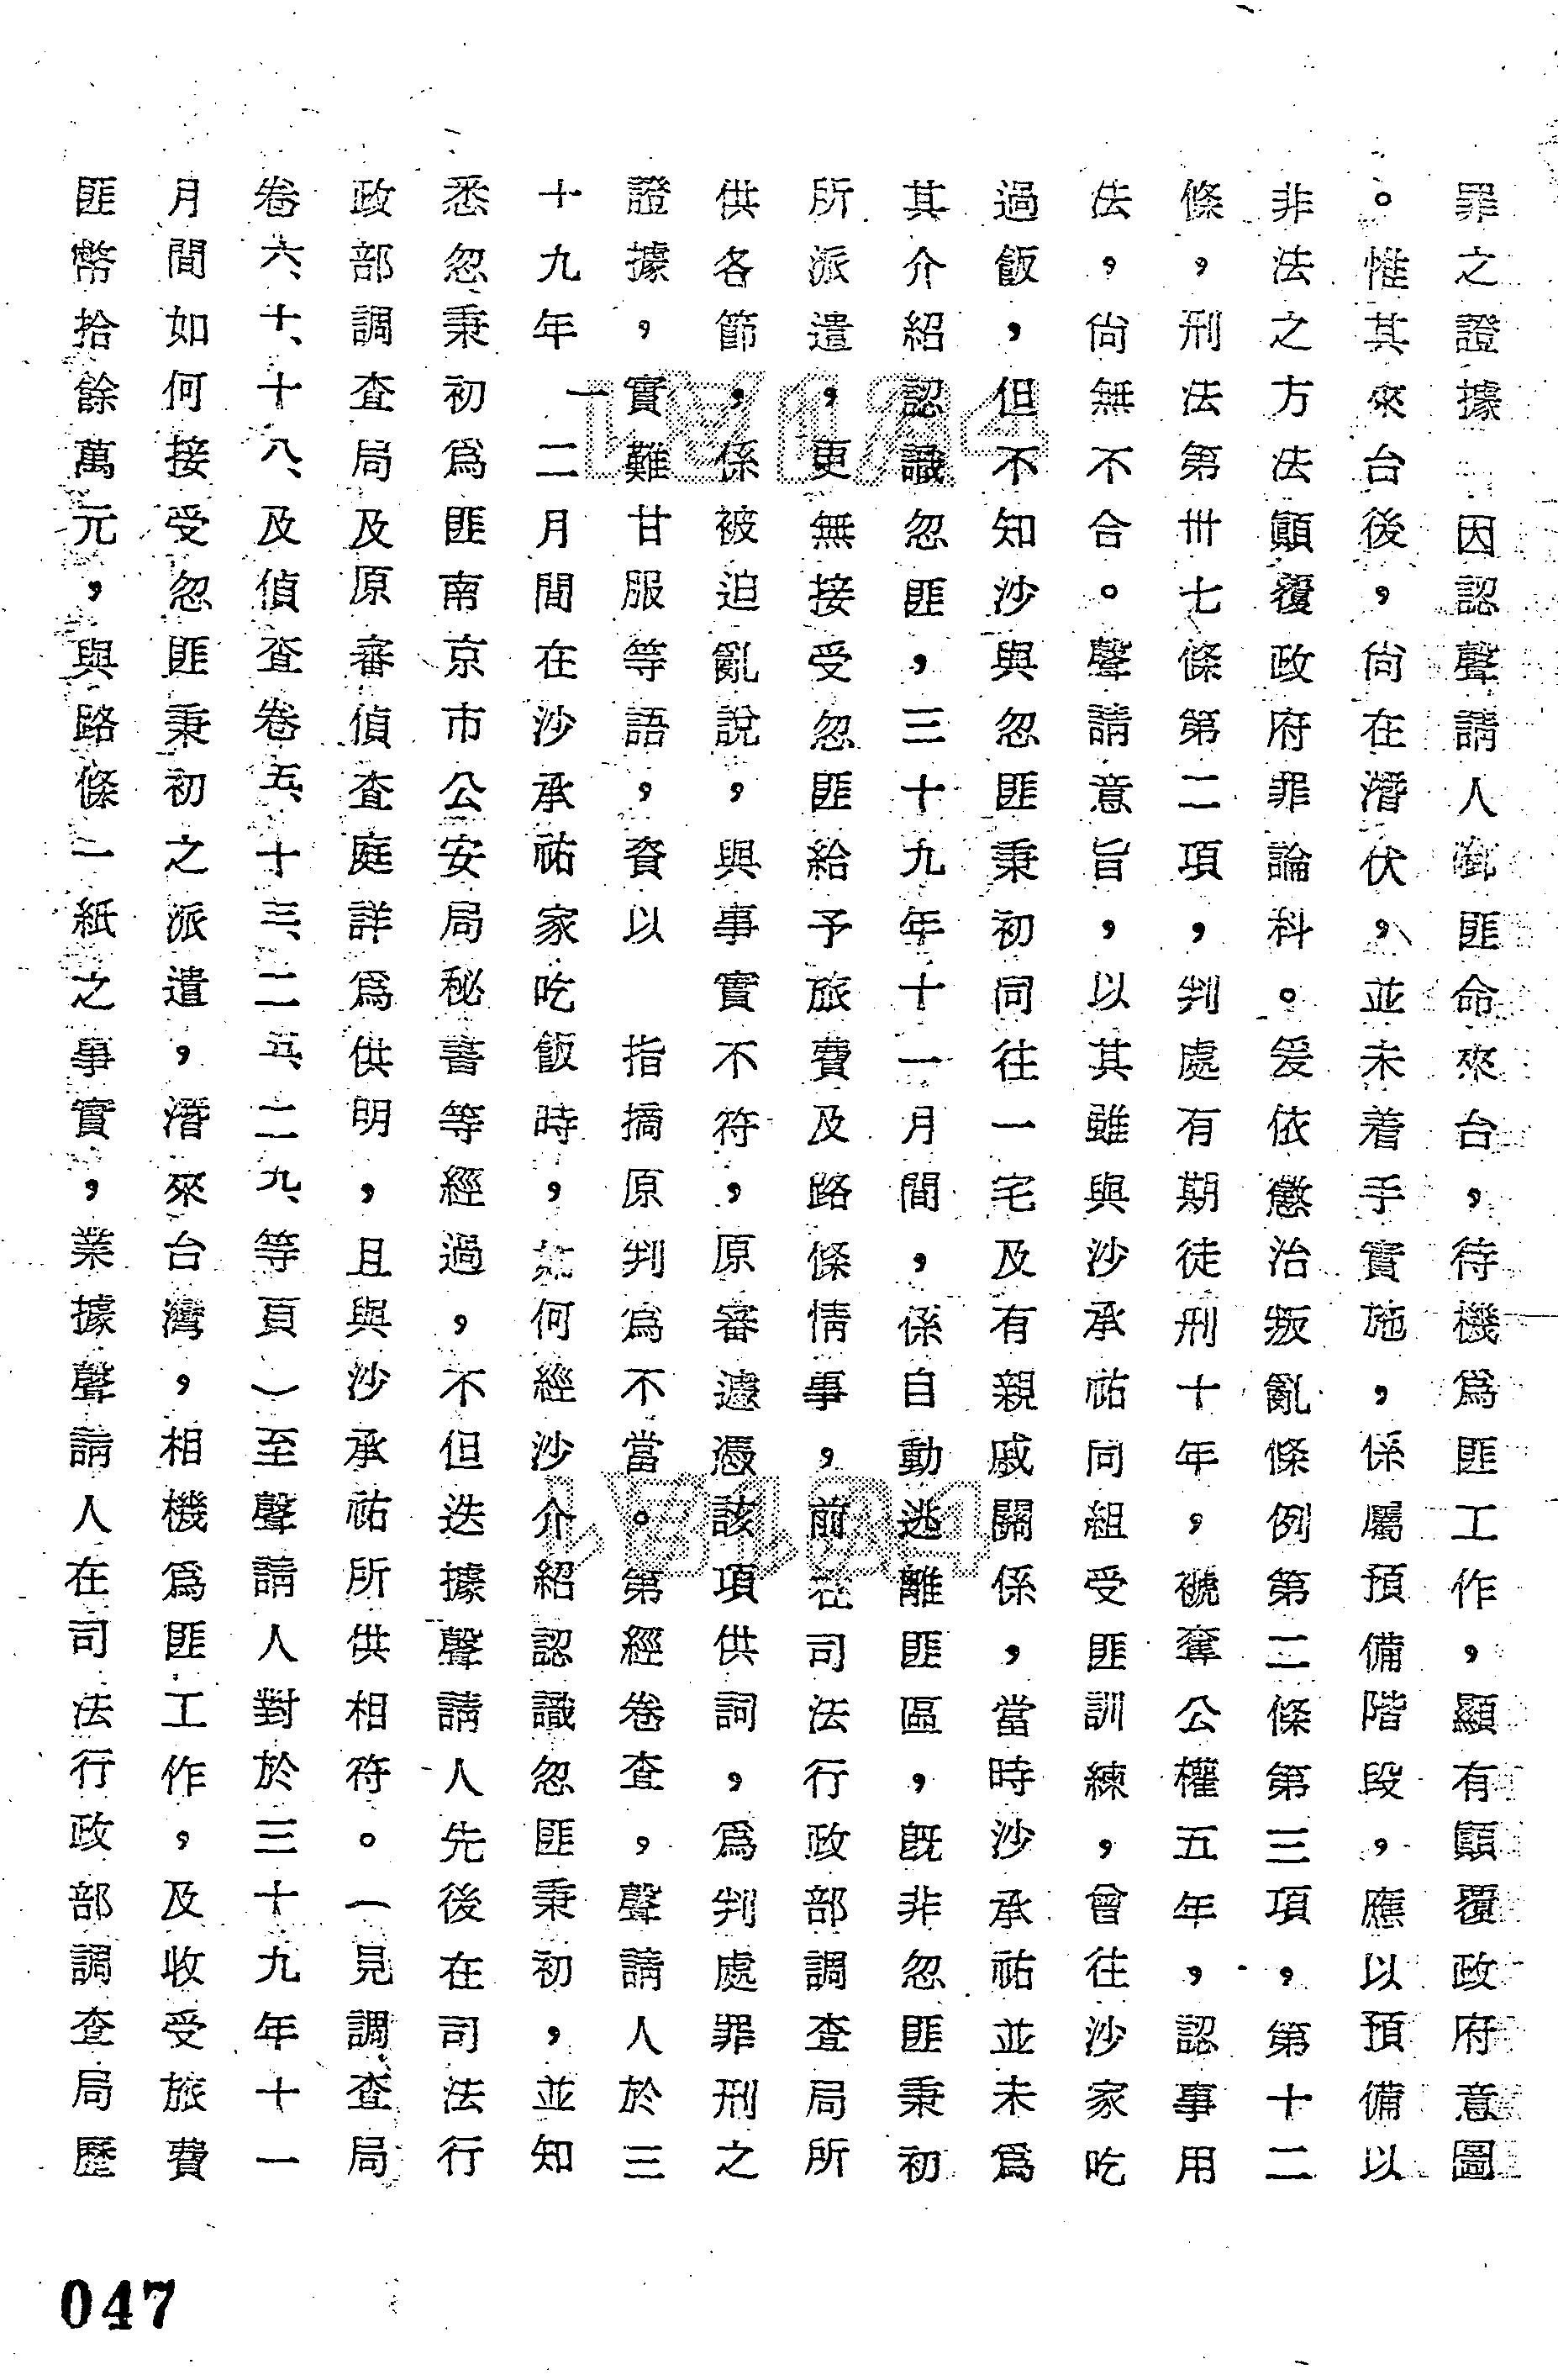 罪之證據 因認聲請人啣匪命來台，待機爲匪工作，顯有顛覆政府意圖
。惟其來台後，尙在潛伏，並未着手實施，係屬預備階段，應以預備以
非法之方法顛覆政府罪論科。爰依懲治叛亂條例第二條第三項，第十二
條，刑法第卅七條第二項，判處有期徒刑十年，褫奪公權五年，認事用
法，尙無不合。聲請意旨，以其雖與沙承祐同組受匪訓練，曾往沙家吃
過飯，但不知沙與忽匪秉初同往一宅及有親戚關係，當時沙承祐並未爲
其介紹認識忽匪，三十九年十一月間，係自動逃離匪區，旣非忽匪秉初
所派遣，更無接受忽匪給予旅費及路條情事，前在司法行政部調查局所
供各節，係被迫亂說，與事實不符，原審遽憑該項供詞，爲判處罪刑之
證據，實難甘服等語，資以 指摘原判爲不當。第經卷查，聲請人於三
十九年一二月間在沙承祐家吃飯時，如何經沙介紹認識忽匪秉初，並知
悉忽秉初爲匪南京市公安局秘書等經過，不但迭據聲請人先後在司法行
政部調查局及原審偵查庭詳爲供明，且與沙承祐所供相符。（見調查局
卷六、十、十八、及偵查卷五、十三、二五、二九、等頁）至聲請人對於三十九年十一
月間如何接受忽匪秉初之派遣，潛來台灣，相機爲匪工作，及收受旅費
匪幣拾餘萬元，與路條一紙之事實，業據聲請人在司法行政部調查局歷
047